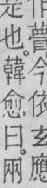 作瞢今依玄應
是也。韓愈曰。兩